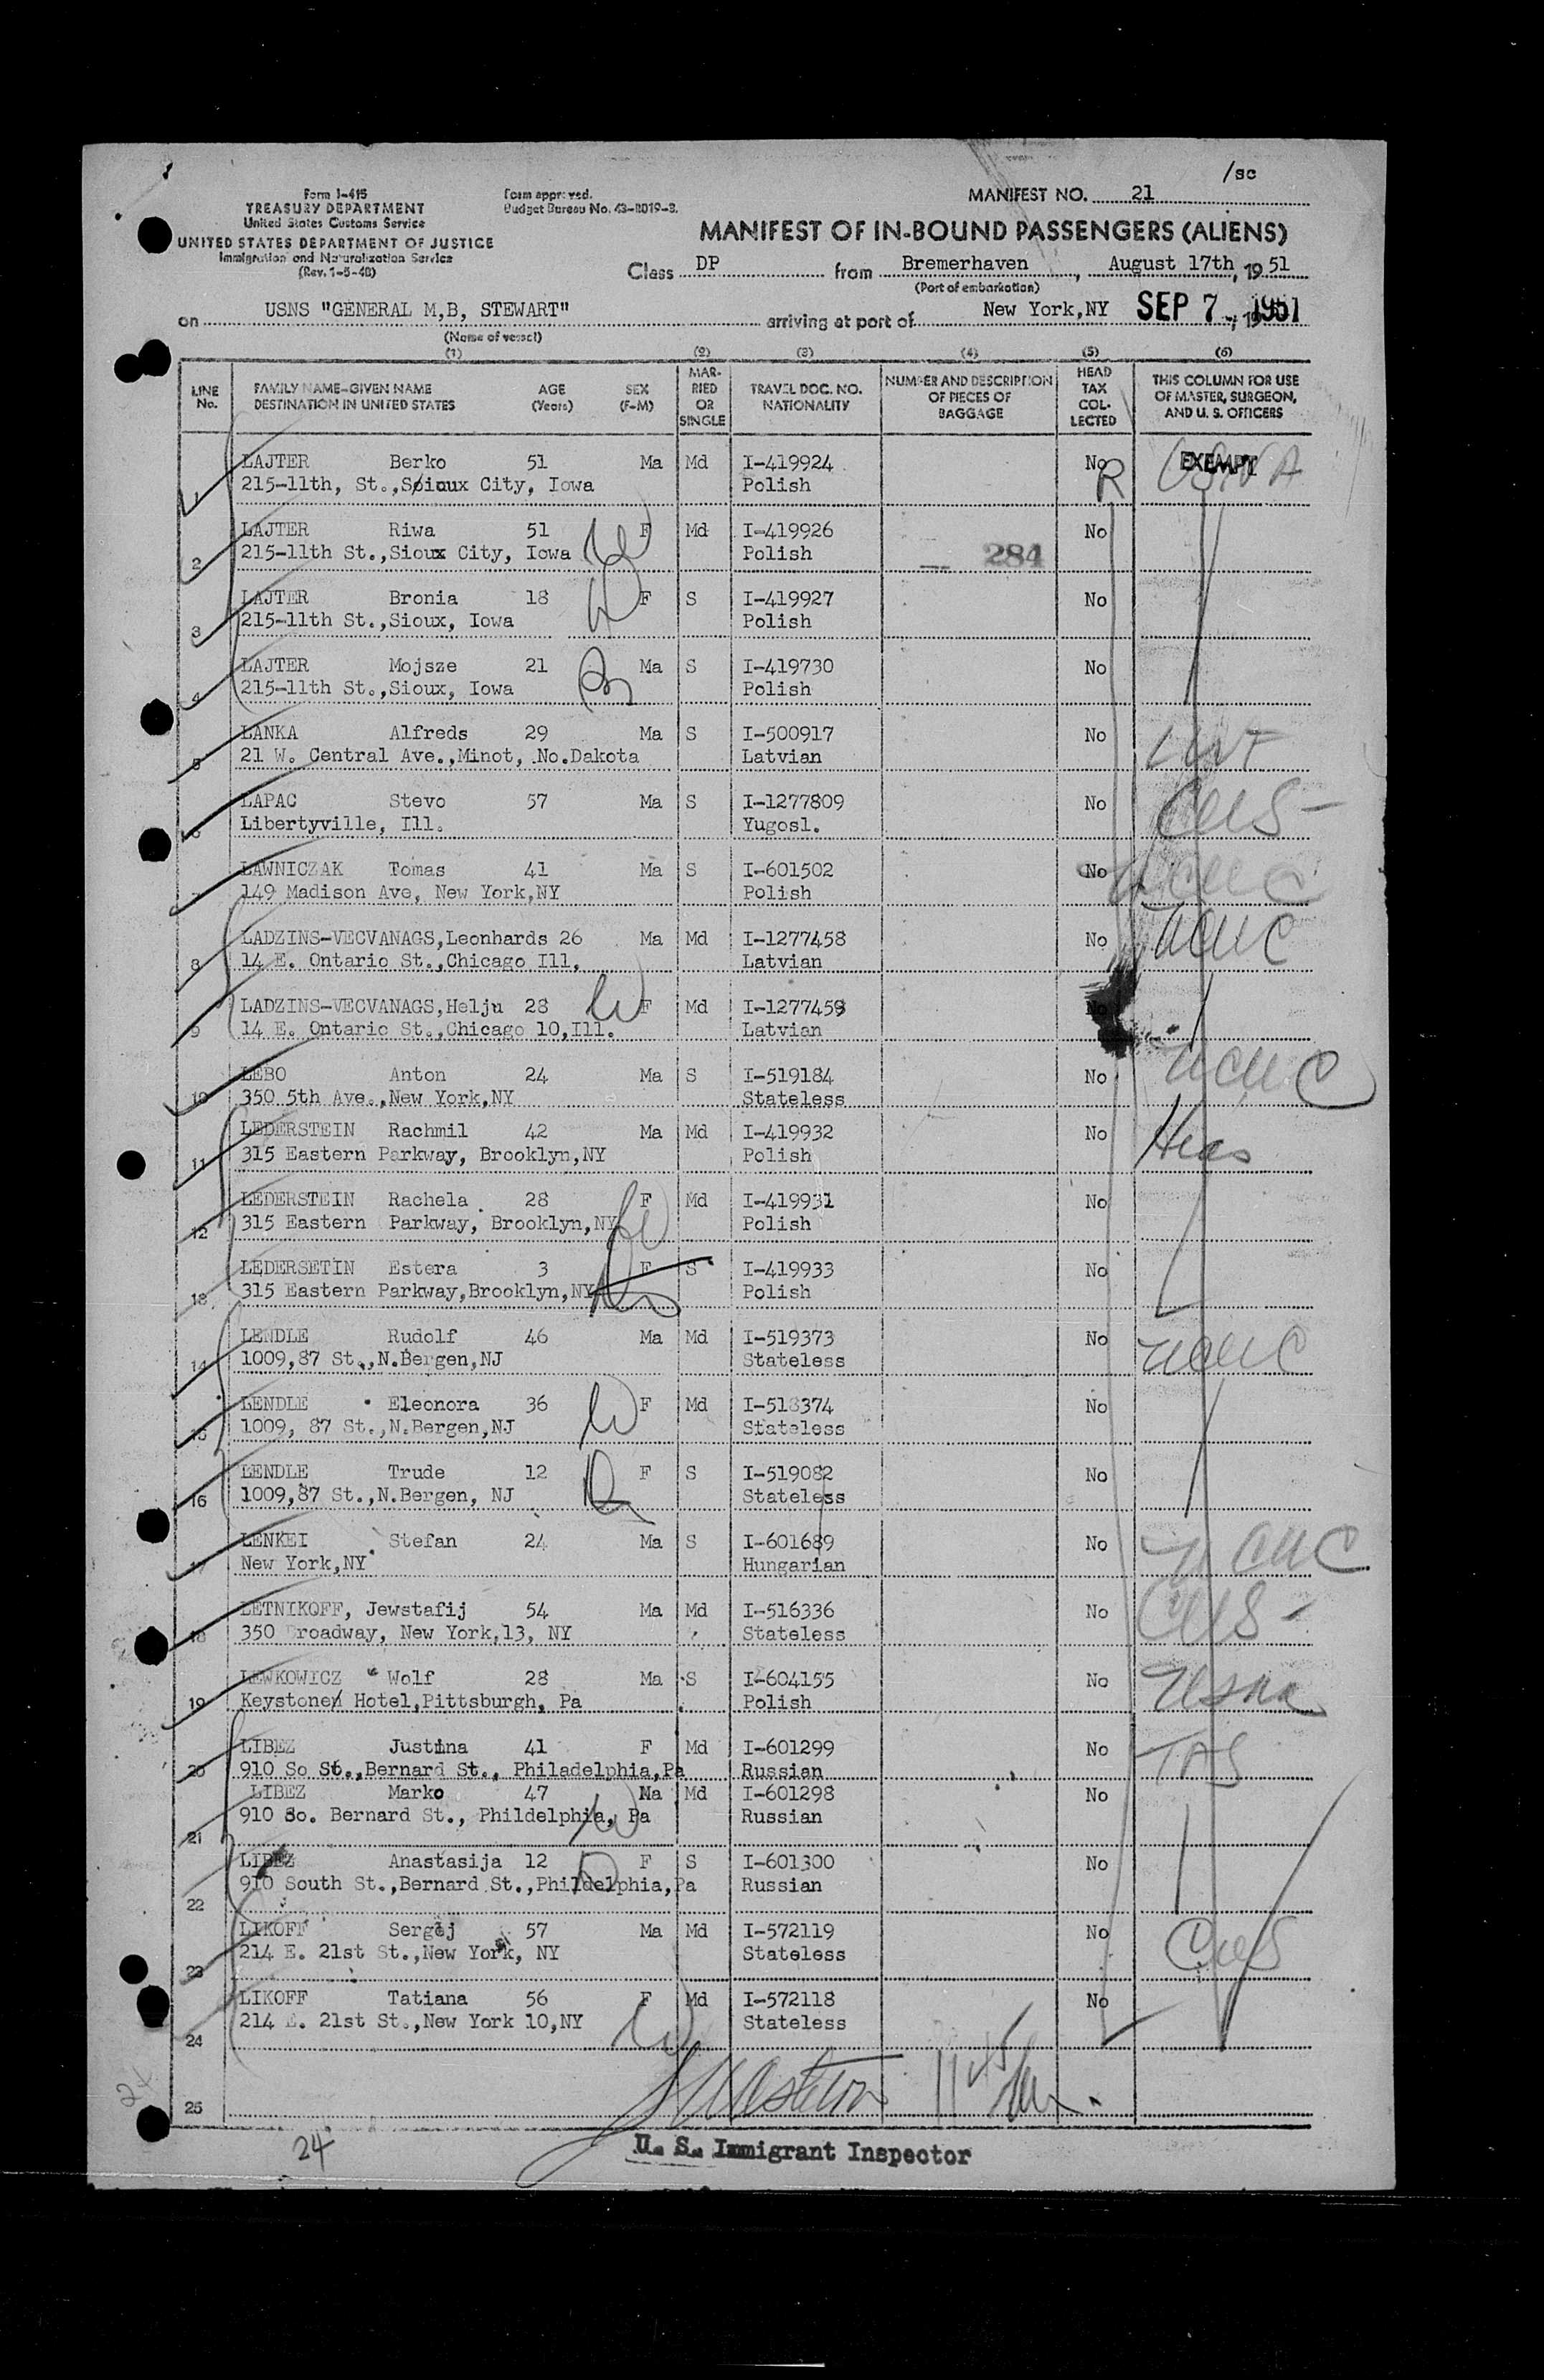 /sc
Form I-415
TREASURY DEPARTMENT
United States Customs Service
UNITED STATES DEPARTMENT OF JUSTICE
Immigration and Naturalization Service
(Rev. 1-5-48)
Form approved.
Budget Bureau No. 43-R019-3.
MANIFEST NO. 21
MANIFEST OF IN-BOUND PASSENGERS (ALIENS)
Class DP from Bremerhaven, August 17th, 1951
(Port of embarkation)
on USNS "GENERAL M,B, STEWART" arriving at port of New York,NY SEP 7 1951, 19
(Name of vessel)
(1) (2) (3) (4) (5) (6)
LINE No. FAMILY NAME-GIVEN NAME DESTINATION IN UNITED STATES AGE (Years) SEX (F-M) MARRIED OR SINGLE TRAVEL DOC. NO. NATIONALITY NUMBER AND DESCRIPTION OF PIECES OF BAGGAGE HEAD TAX COLLECTED THIS COLUMN FOR USE OF MASTER, SURGEON, AND U. S. OFFICERS
LAJTER Berko 51 Ma Md I-419924 No R EXEMPT USNA
1 215-11th, St.,Sioux City, Iowa Polish
LAJTER Riwa 51 F Md I-419926 No
2 215-11th St.,Sioux City, Iowa W Polish 284
LAJTER Bronia 18 F S I-419927 No
3 215-11th St.,Sioux, Iowa Polish
LAJTER Mojsze 21 Ma S I-419730 No
4 215-11th St.,Sioux, Iowa Polish
LANKA Alfreds 29 Ma S I-500917 No
5 21 W. Central Ave.,Minot, No.Dakota Latvian LWF
LAPAC Stevo 57 Ma S I-1277809 No CWS-
6 Libertyville, Ill. Yugosl.
LAWNICZAK Tomas 41 Ma S I-601502 No NCWC
7 149 Madison Ave, New York,NY Polish
LADZINS-VECVANAGS,Leonhards 26 Ma Md I-1277458 No NCWC
8 14 E. Ontario St.,Chicago Ill, Latvian
LADZINS-VECVANAGS,Helju 28 W F Md I-1277459 No
9 14 E. Ontario St.,Chicago 10,Ill. Latvian
LEBO Anton 24 Ma S I-519184 No NCWC
10 350 5th Ave.,New York,NY Stateless
LEDERSTEIN Rachmil 42 Ma Md I-419932 No Hias
11 315 Eastern Parkway, Brooklyn,NY Polish
LEDERSTEIN Rachela 28 F Md I-419931 No
12 315 Eastern Parkway, Brooklyn,NY W Polish
LEDERSETIN Estera 3 F S I-419933 No
13 315 Eastern Parkway,Brooklyn,NY Polish
LENDLE Rudolf 46 Ma Md I-519373 No NCWC
14 1009,87 St.,N.Bergen,NJ Stateless
LENDLE Eleonora 36 W F Md I-518374 No
15 1009, 87 St.,N.Bergen,NJ Stateless
LENDLE Trude 12 F S I-519082 No
16 1009,87 St.,N.Bergen, NJ Stateless
LENKEI Stefan 24 Ma S I-601689 No NCWC
17 New York,NY Hungarian
LETNIKOFF, Jewstafij 54 Ma Md I-516336 No CWS-
18 350 roadway, New York,13, NY Stateless
LEWKOWICZ Wolf 28 Ma S I-604155 No USNA
19 Keystone Hotel,Pittsburgh, Pa Polish
LIBEZ Justina 41 F Md I-601299 No TAS
20 910 So St.,Bernard St., Philadelphia,Pa Russian
LIBEZ Marko 47 Ma Md I-601298 No
21 910 So. Bernard St., Phildelphia, Pa W Russian
LIBEZ Anastasija 12 D F S I-601300 No
22 910 South St.,Bernard St.,Phildelphia,Pa Russian
LIKOFF Sergej 57 Ma Md I-572119 No CWS
23 214 E. 21st St.,New York, NY Stateless
LIKOFF Tatiana 56 F Md I-572118 No
24 214 E. 21st St.,New York 10,NY W Stateless
25
24
24
U. S. Immigrant Inspector